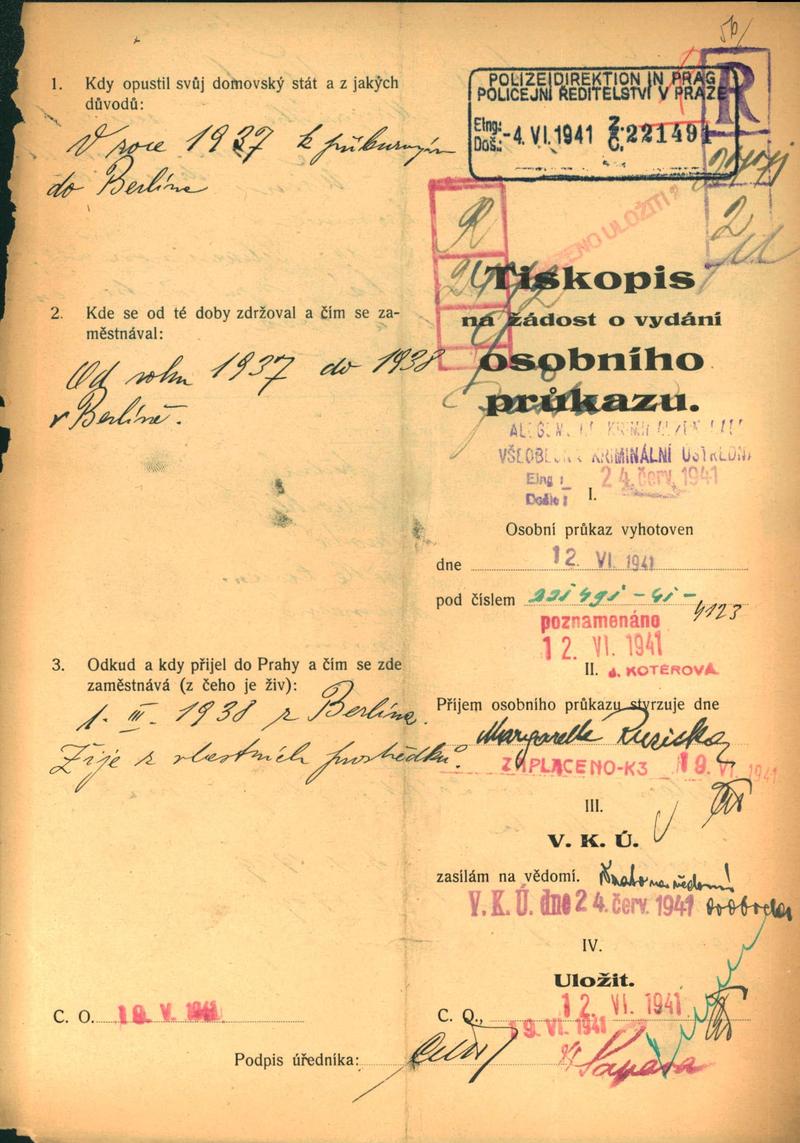 1. Kdy opustil svůj domovský stát a z jakých
důvodů:
V roce 1937 k příbuzným
do Berlína
2. Kde se od té doby zdržoval a čím se za-
městnával:
Od roku 1937 do 1938
v Berlíně.
3. Odkud a kdy přijel do Prahy a čím se zde
zaměstnává (z čeho je živ):
1. III. 1938 z Berlína.
Žije z vlastních prostředků.
C. O. 19. V. 1941
Podpis úředníka:
POLIZEIDIREKTION IN PRAG
POLICEJNÍ ŘEDITELSTVÍ V PRAZE
Eing.:
Doš.: -4. VI. 1941 Z. Č. 221491
R
2
R
ULOŽITI
Tiskopis
na žádost o vydání
osobního
průkazu.
VŠEOBECNÁ KRIMINÁLNÍ ÚSTŘEDNA
Eing.:
Došlo: 24. červ. 1941
I.
Osobní průkaz vyhotoven
dne 12. VI. 1941
pod číslem 221491-41-
4123
poznamenáno
12. VI. 1941
II. J. KOTĚROVÁ
Příjem osobního průkazu stvrzuje dne
Margarethe Ruziska
ZAPLACENO-K3 19. VI. 1941
III.
V. K. Ú.
zasílám na vědomí. Vzato na vědomí
V. K. Ú. dne 24. červ. 1941 svoboda
IV.
Uložit.
12. VI. 1941
C. O., 19. VI. 1941